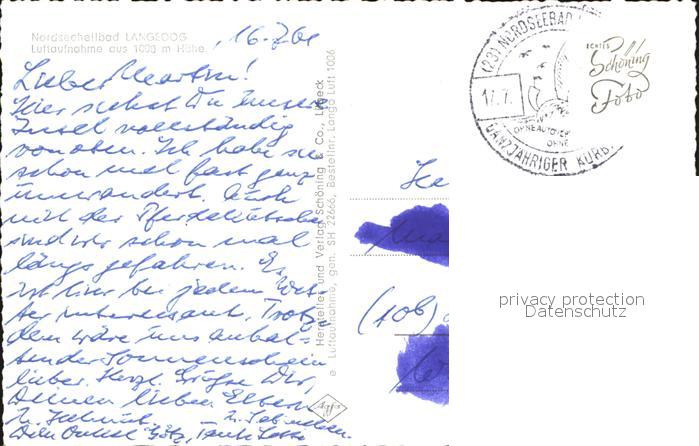 Nordseeheilbad LANGEOOG
Luftaufnahme aus 1000 m Höhe
16.7.61
Lieber Martin!
Hier siehst Du unsere
Insel vollständig
von oben. Ich habe sie
schon mal fast ganz
umwandert. Auch
mit der Pferdekutsche
sind wir schon mal
längs gefahren. Es
ist hier bei jedem Wet-
ter interessant. Trotz-
dem wäre uns anhal-
tender Sonnenschein
lieber. Herzl. Grüße Dir,
Deinen lieben Eltern
u. Helmut.
Dein Onkel Götz, Tante
Hersteller und Verlag Schöning & Co., Lübeck
Luftaufnahme, gen. SH 22666, Bestellnr. Lango Luft 1006
Agfa
(23) NORDSEEBAD
17.7.
OHNE AUTOVER
OHNE
GANZJÄHRIGER KURB
ECHTES
Schöning
Foto
He
(10b)
privacy protection
Datenschutz